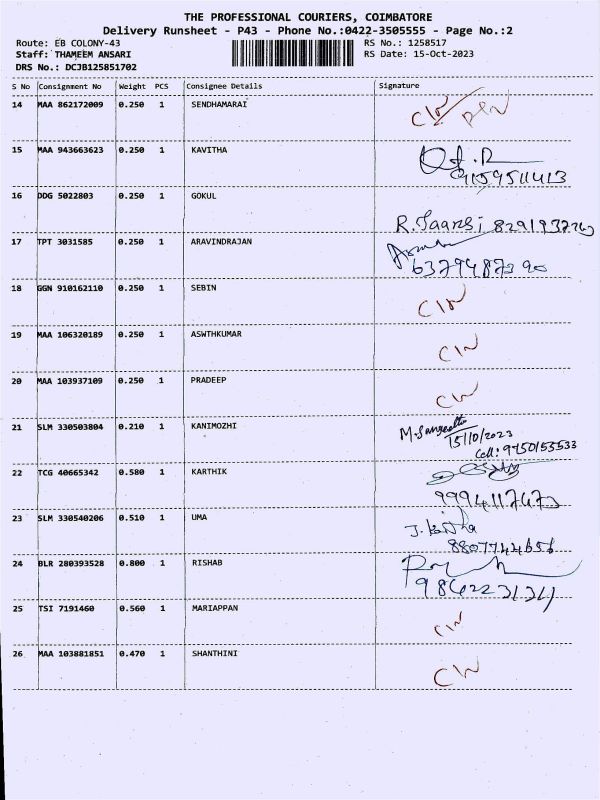 THE PROFESSIONAL COURIERS, COIMBATORE
Delivery Runsheet - P43 - Phone No.:0422-3505555 - Page No.:2
Route: EB COLONY-43 RS No.: 1258517
Staff: THAMEEM ANSARI RS Date: 15-Oct-2023
DRS No.: DCJB125851702
S No Consignment No Weight PCS Consignee Details Signature
14 MAA 862172009 0.250 1 SENDHAMARAI
15 MAA 943663623 0.250 1 KAVITHA
9159511413
16 DDG 5022803 0.250 1 GOKUL
17 TPT 3031585 0.250 1 ARAVINDRAJAN
18 GGN 910162110 0.250 1 SEBIN
19 MAA 106320189 0.250 1 ASWTHKUMAR
20 MAA 103937109 0.250 1 PRADEEP
21 SLM 330503804 0.210 1 KANIMOZHI M.Sangeetha
15/10/2023
Cell: 9750155533
22 TCG 40665342 0.580 1 KARTHIK
9994117473
23 SLM 330540206 0.510 1 UMA
8807744656
24 BLR 280393528 0.800 1 RISHAB
25 TSI 7191460 0.560 1 MARIAPPAN
26 MAA 103881851 0.470 1 SHANTHINI